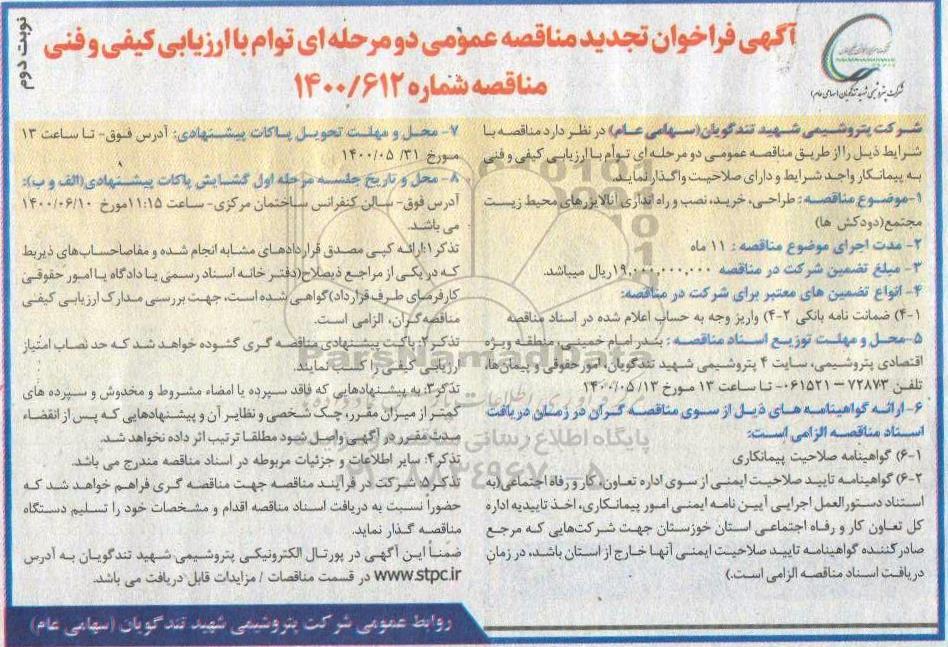 نوبت دوم
آگهی فراخوان تجدید مناقصه عمومی دو مرحله ای توام با ارزیابی کیفی و فنی
مناقصه شماره ۱۴۰۰/۶۱۲
شرکت پتروشیمی شهید تندگویان (سهامی عام)
شرکت پتروشیمی شهید تندگویان (سهامی عام) در نظر دارد مناقصه با
شرایط ذیل را از طریق مناقصه عمومی دو مرحله ای توأم با ارزیابی کیفی و فنی
به پیمانکار واجد شرایط و دارای صلاحیت واگذار نماید.
۱-موضوع مناقصه: طراحی، خرید، نصب و راه اندازی آنالایزرهای محیط زیست
مجتمع (دودکش ها)
۲- مدت اجرای موضوع مناقصه: ۱۱ ماه
۳- مبلغ تضمین شرکت در مناقصه ۱۹,۰۰۰,۰۰۰,۰۰۰ ریال میباشد.
۴- انواع تضمین های معتبر برای شرکت در مناقصه:
۴-۱) ضمانت نامه بانکی ۴-۲) واریز وجه به حساب اعلام شده در اسناد مناقصه
۵-محل و مهلت توزیع اسناد مناقصه: بندر امام خمینی، منطقه ویژه
اقتصادی پتروشیمی، سایت ۴ پتروشیمی شهید تندگویان، امور حقوقی و پیمان‌ها،
تلفن ۷۲۸۷۳ – ۰۶۱۵۲۱- تا ساعت ۱۳ مورخ ۱۴۰۰/۰۵/۱۳
۶- ارائه گواهینامه های ذیل از سوی مناقصه گران در زمان دریافت
اسناد مناقصه الزامی است:
۶-۱) گواهینامه صلاحیت پیمانکاری
۶-۲) گواهینامه تایید صلاحیت ایمنی از سوی اداره تعاون، کار و رفاه اجتماعی (به
استناد دستورالعمل اجرایی آیین نامه ایمنی امور پیمانکاری، اخذ تاییدیه اداره
کل تعاون کار و رفاه اجتماعی استان خوزستان جهت شرکت‌هایی که مرجع
صادر کننده گواهینامه تایید صلاحیت ایمنی آنها خارج از استان باشد، در زمان
دریافت اسناد مناقصه الزامی است.)
۷- محل و مهلت تحویل پاکات پیشنهادی: آدرس فوق- تا ساعت ۱۳
مورخ ۱۴۰۰/۰۵/۳۱
۸- محل و تاریخ جلسه مرحله اول گشایش پاکات پیشنهادی (الف و ب):
آدرس فوق- سالن کنفرانس ساختمان مرکزی- ساعت ۱۱:۱۵ مورخ ۱۴۰۰/۰۶/۱۰
می باشد.
تذکر۱: ارائه کپی مصدق قراردادهای مشابه انجام شده و مفاصاحساب‌های ذیربط
که در یکی از مراجع ذیصلاح (دفتر خانه اسناد رسمی یا دادگاه یا امور حقوقی
کارفرمای طرف قرارداد) گواهی شده است، جهت بررسی مدارک ارزیابی کیفی
مناقصه‌گران، الزامی است.
تذکر۲: پاکت پیشنهادی مناقصه گری گشوده خواهد شد که حد نصاب امتیاز
ارزیابی کیفی را کسب نمایند.
تذکر۳: به پیشنهادهایی که فاقد سپرده یا امضاء مشروط و مخدوش و سپرده های
کمتر از میزان مقرر، چک شخصی و نظایر آن و پیشنهادهایی که پس از انقضاء
مدت مقرر در آگهی واصل شود مطلقا ترتیب اثر داده نخواهد شد.
تذکر۴: سایر اطلاعات و جزئیات مربوطه در اسناد مناقصه مندرج می باشد.
تذکر۵: شرکت در فرآیند مناقصه جهت مناقصه گری فراهم خواهد شد که
حضورا نسبت به دریافت اسناد مناقصه اقدام و مشخصات خود را تسلیم دستگاه
مناقصه گذار نماید.
ضمناً این آگهی در پورتال الکترونیکی پتروشیمی شهید تندگویان به آدرس
www.stpc.ir در قسمت مناقصات / مزایدات قابل دریافت می باشد.
روابط عمومی شرکت پتروشیمی شهید تندگویان (سهامی عام)
ParsNamadData
پایگاه اطلاع رسانی